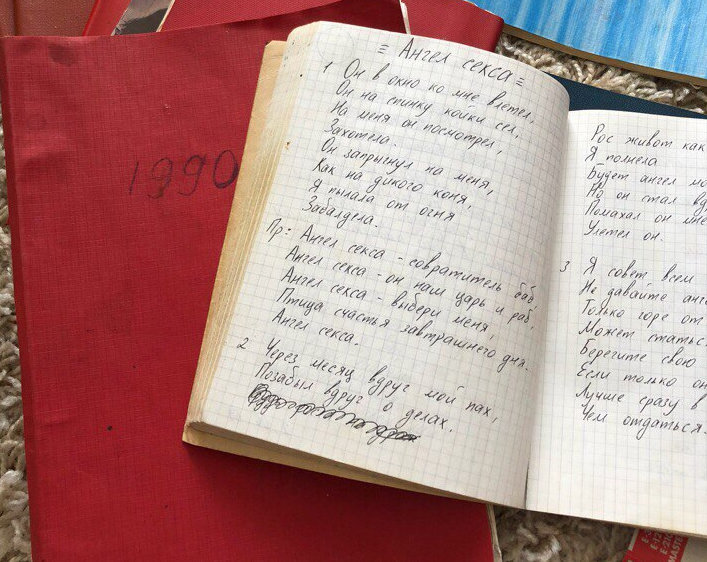 1990
= Ангел секса =
1 Он в окно ко мне влетел,
Он на спинку койки сел,
На меня он посмотрел,
Захотела.
Он запрыгнул на меня,
Как на дикого коня,
Я пылала от огня
Забалдела.
Пр: Ангел секса - совратитель баб
Ангел секса - он наш царь и раб,
Ангел секса - выбери меня,
Птица счастья завтрашнего дня.
Ангел секса.
2 Через месяц вдруг мой пах,
Позабыл вдруг о делах,
Рос живот как
Я полнела
Будет ангел
Но он стал
Помахал он мне
Улетел он.
3 Я совет всем
Не давайте
Только горе от
Может статься
Берегите свою
Если только он
Лучше сразу в
Чем отдаться.